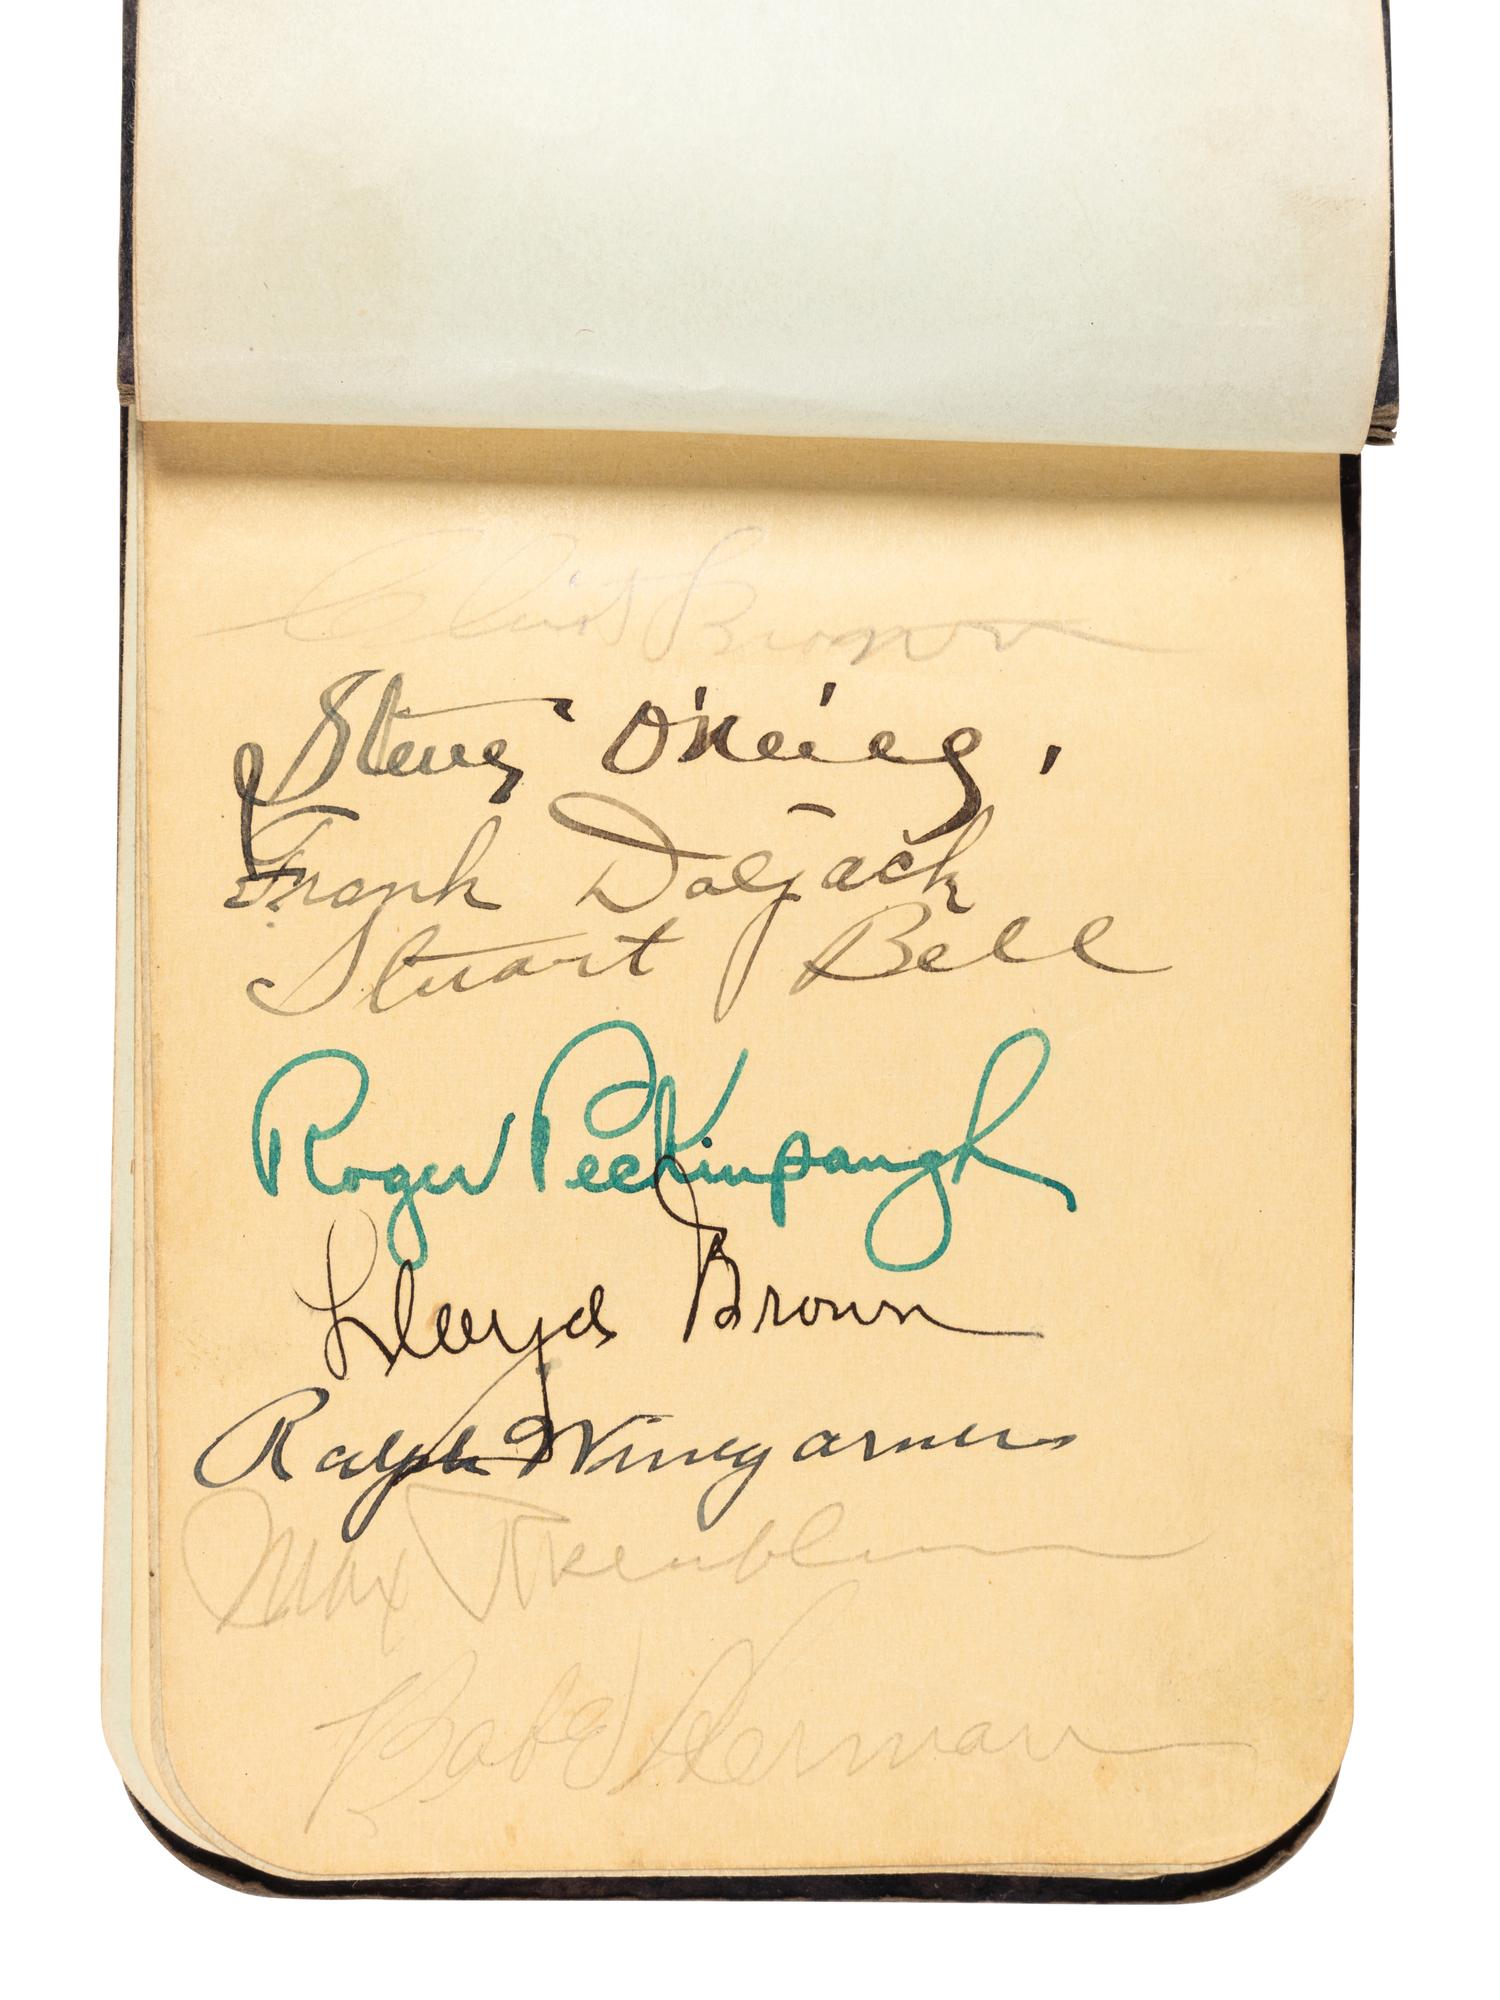 Clint Brown
Steve O'Neill.
Frank Doljack
Stuart Bell
Roger Peckinpaugh
Lloyd Brown
Ralph Winegarner
Max Rosenblum
Babe Herman